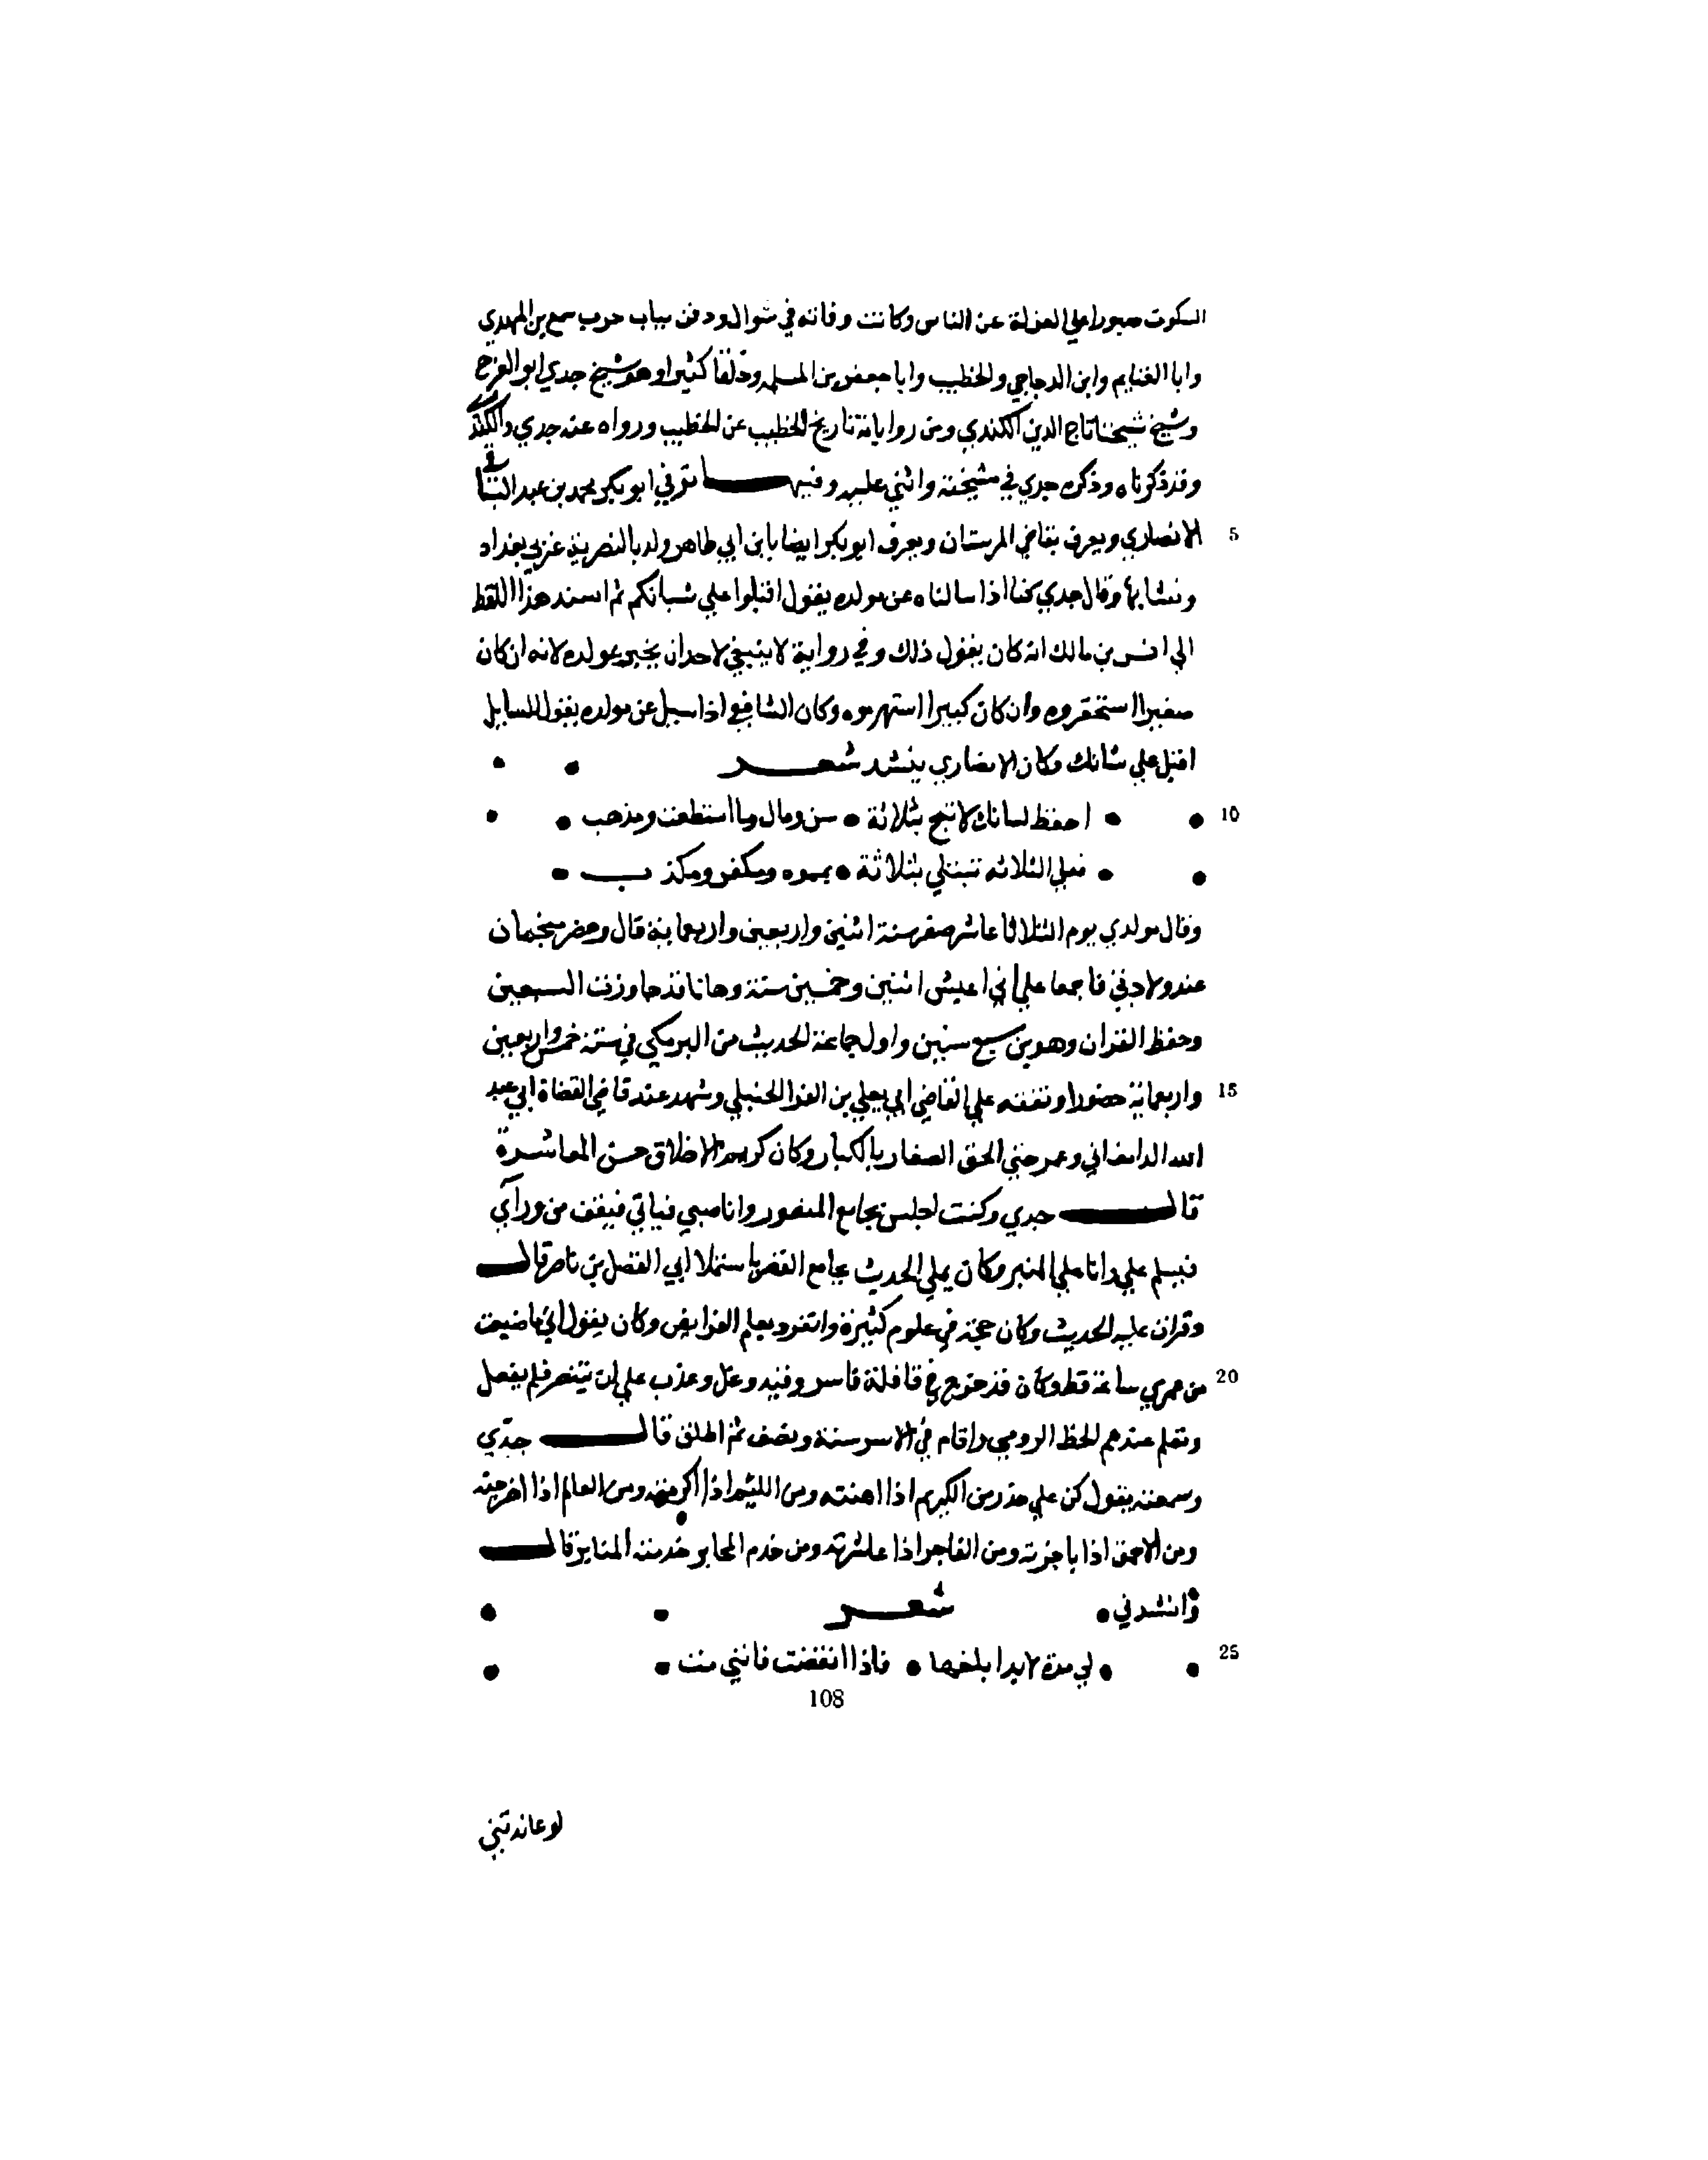 السكوت صبورا علي العزلة عن الناس وكانت وفاته في شوال ودفن بباب حرب سمع بن المهدي
وابا الغنايم وابن الدجاجي والخطيب وابا جعفر بن المسلمه وخلقا كثيرا وهو شيخ جدي ابو الفرج
وشيخ شيخنا تاج الدين الكندي ومن رواياته تاريخ الخطيب عن الخطيب ورواه عنه جدي والكندي
وقد ذكرناه وذكره جدي في مشيخته واثني عليه وفيها توفي ابو بكر محمد بن عبد الباقي
5 الانصاري ويعرف بقاضي المرستان ويعرف ابو بكر ايضا بابن ابي طاهر ولد بالنصرية غربي بغداد
ونشا بها وقال جدي كنا اذا سالناه عن مولده يقول اقبلوا علي شبانكم ثم اسند هذا اللفظ
الي انس بن مالك انه كان يقول ذلك وفي رواية لا ينبغي لاحد ان يخبر بمولده لانه ان كان
صغيرا استحقروه وان كان كبيرا استهرموه وكان الشافعي اذا سيل عن مولده يقول للسايل
اقبل علي شانك وكان الانصاري ينشد شعر
10 احفظ لسانك لا تبح بثلاثة • سن ومال وما استطعت ومذهب
فعلي الثلاثه تبتلي بثلاثة • بمموه ومكفر ومكذب
وقال مولدي يوم الثلاثا عاشر صفر سنة اثنين واربعين واربعماية قال وحضر منجمان
عند ولادتي فاجمعا علي اني اعيش اثنين وخمسين سنة وها انا قد جاوزت السبعين
وحفظ القران وهو بن سبع سنين واول سماعه الحديث من البرمكي في سنة خمس واربعين
15 واربعماية حضورا وتفقه علي القاضي ابي يعلي بن الفرا الحنبلي وشهد عند قاضي القضاة ابي عبد
الله الدامغاني وعمر حتي الحق الصغار بالكبار وكان كريم الاخلاق حسن المعاشرة
قال جدي وكنت اجلس بجامع المنصور وانا صبي فياتي فيقف من وراي
فيسلم علي وانا علي المنبر وكان يملي الحديث بجامع القصر باستملا ابي الفضل بن ناصر قال
وقرات عليه الحديث وكان حجة في علوم كثيرة وانفرد بعلم الفرايض وكان يقول اني ما ضيعت
20 من عمري ساعة قط وكان قد خرج في قافلة فاسر وقيد وغل وعذب علي ان يتنصر فلم يفعل
وتعلم عندهم الخط الرومي واقام في الاسر سنة ونصف ثم اطلق قال جدي
وسمعته يقول كن علي حذر من الكريم اذا اهنته ومن اللئيم اذا اكرمته ومن العالم اذا احرجته
ومن الاحمق اذا مازحته ومن الفاجر اذا عاشرته ومن خدم المحابر خدمته المنابر قال
وانشدني • شعر
25 لي مدة لابد ابلغها • فاذا انقضت فانني مت
108
لو عاندتني